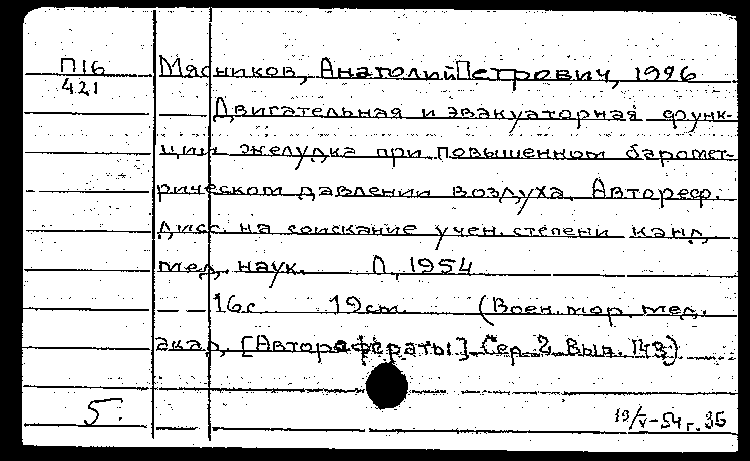 П16
421
Мясников, Анатолий Петрович, 1926
Двигательная и эвакуаторная функ-
ции желудка при повышенном баромет-
рическом давлении воздуха. Автореф.
дисс. на соискание учен. степени канд.
мед. наук. Л., 1954
16с. 19см. (Воен. мор. мед.
акад. [Авторефераты]. Сер. 2. Вып. 143)
5.
19/V-54 г. 35